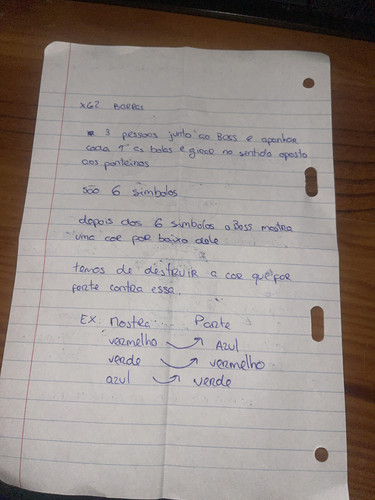 x62 BORRAS
3 pessoas junto ao Boss e apanhar
cada 1 as bolas e girar no sentido oposto
aos ponteiros
são 6 simbolos
depois dos 6 simbolos o Boss mostra
uma cor por baixo dele
temos de destruir a cor que for
forte contra essa.
EX. Mostra Forte
vermelho Azul
verde vermelho
azul verde